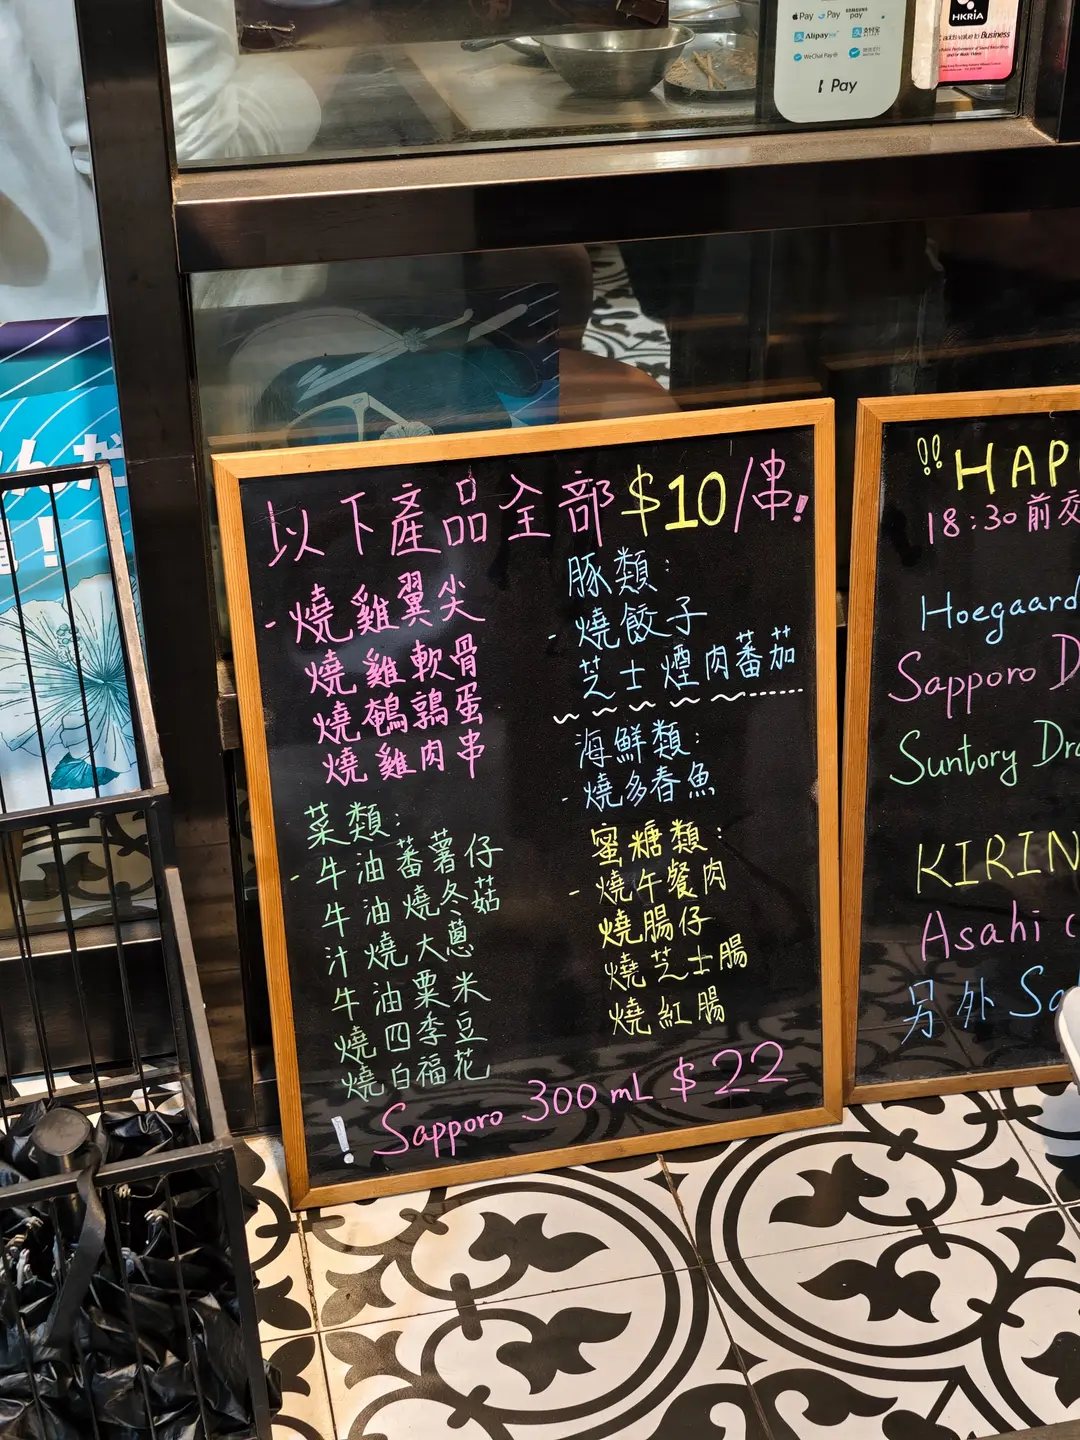 Pay Pay SAMSUNG pay
Alipay 支付宝
WeChat Pay
Pay
HKRIA
adds value to Business
以下產品全部$10/串!
- 燒雞翼尖
燒雞軟骨
燒鵪鶉蛋
燒雞肉串
菜類:
- 牛油蕃薯仔
牛油燒冬菇
汁燒大蔥
牛油粟米
燒四季豆
燒白福花
豚類:
- 燒餃子
芝士煙肉蕃茄
海鮮類:
- 燒多春魚
蜜糖類:
- 燒午餐肉
燒腸仔
燒芝士腸
燒紅腸
! Sapporo 300mL $22
!! HAP
18:30前交
Hoegaard
Sapporo D
Suntory Dra
KIRIN
Asahi
另外 Sa